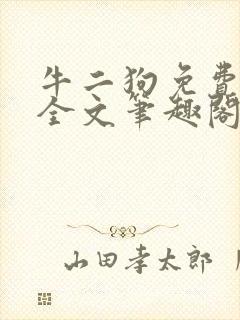 牛二狗免費
全文筆趣閣
山田孝太郎